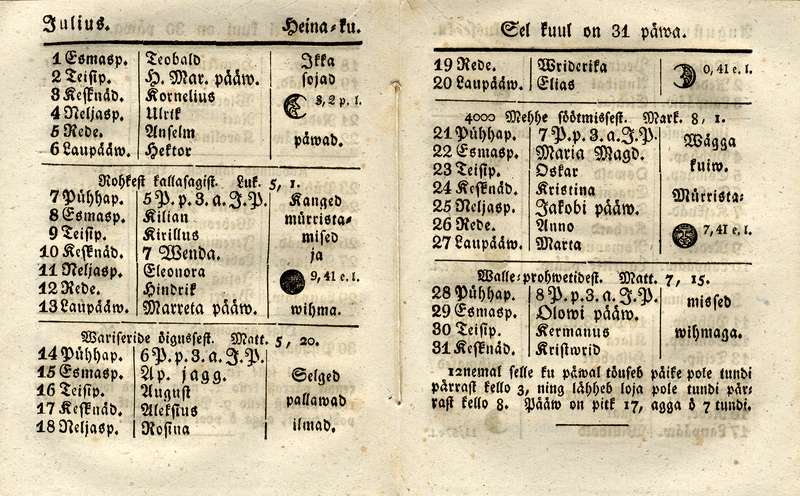 Julius. Heina-ku.
1 Esmasp. Teobald Ikka
2 Teisip. H. Mar. pääw. sojad
3 Kesknäd. Kornelius 3, 2 p. l.
4 Neljasp. Ulrik
5 Rede. Anselm päwad.
6 Laupääw. Hektor
Rohkest kallasagist. Luk. 5, 1.
7 Pühhap. 5 P. p. 3. a. J. P. Kanged
8 Esmasp. Kilian mürrista-
9 Teisip. Kirillus mised
10 Kesknäd. 7 Wenda. ja
11 Neljasp. Eleonora 9, 41 e. l.
12 Rede. Hindrik
13 Laupääw. Marreta pääw. wihma.
Wariseride öigussest. Matt. 5, 20.
14 Pühhap. 6 P. p. 3. a. J. P.
15 Esmasp. Ap. jagg. Selged
16 Teisip. August pallawad
17 Kesknäd. Aleksius
18 Neljasp. Rosina ilmad.
Sel kuul on 31 päwa.
19 Rede. Wriderika 0, 41 e. l.
20 Laupääw. Elias
4000 Mehhe söötmissest. Mark. 8, 1.
21 Pühhap. 7 P. p. 3. a. J. P. Wägga
22 Esmasp. Maria Magd. kuiw.
23 Teisip. Oskar
24 Kesknäd. Kristina Mürrista-
25 Neljasp. Jakobi pääw.
26 Rede. Anno 7, 41 e. l.
27 Laupääw. Marta
Walle-prohwetidest. Matt. 7, 15.
28 Pühhap. 8 P. p. 3. a. J. P. missed
29 Esmasp. Olowi pääw.
30 Teisip. Kermanus wihmaga.
31 Kesknäd. Kristwrid
12nemal selle ku päwal töuseb päike pole tundi
pärrast kello 3, ning lähheb loja pole tundi pär-
rast kello 8. Pääw on pitk 17, agga ö 7 tundi.